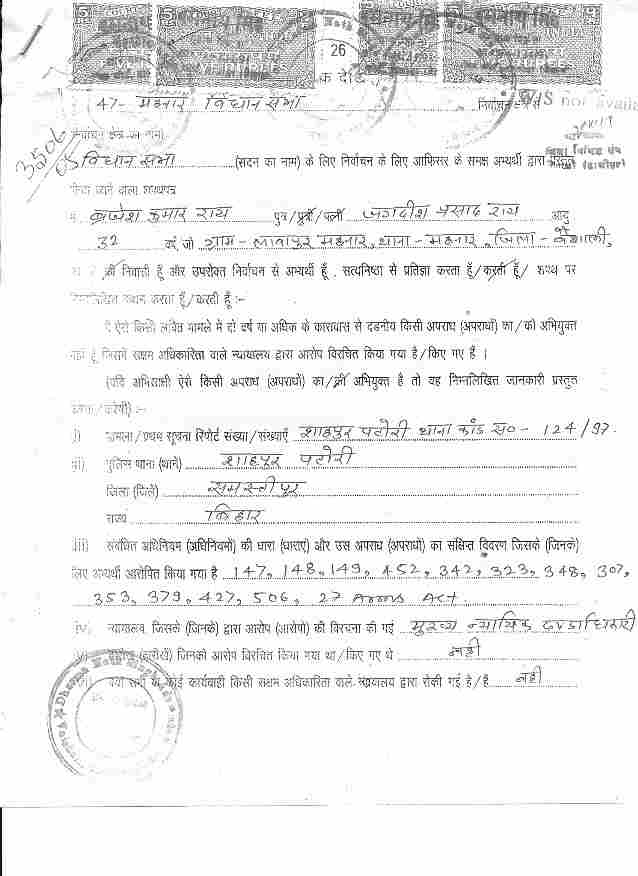 26
47- महनार विधान सभा निर्वाचन क्षेत्र से
निर्वाचन क्षेत्र का नाम
3506/05
विधान सभा (सदन का नाम) के लिए निर्वाचन के लिए आफिसर के समक्ष अभ्यर्थी द्वारा प्रस्तुत
किया जाने वाला शपथपत्र
मैं ब्रजेश कुमार राय पुत्र/पुत्री/पत्नी जगदीश प्रसाद राय आयु
32 वर्ष, जो ग्राम - लावापुर महनार, थाना - महनार, जिला - वैशाली,
का / की निवासी हूँ और उपरोक्त निर्वाचन से अभ्यर्थी हूँ, सत्यनिष्ठा से प्रतिज्ञा करता हूँ/करती हूँ/ शपथ पर
निम्नलिखित कथन करता हूँ/करती हूँ :-
मैं ऐसे किसी लंबित मामले में दो वर्ष या अधिक के कारावास से दंडनीय किसी अपराध (अपराधों) का/की अभियुक्त
नहीं हूँ जिसमें सक्षम अधिकारिता वाले न्यायालय द्वारा आरोप विरचित किया गया है/किए गए हैं ।
(यदि अभिसाक्षी ऐसे किसी अपराध (अपराधों) का/की अभियुक्त है तो वह निम्नलिखित जानकारी प्रस्तुत
करेगा/करेगी) :-
i) मामला/प्रथम सूचना रिपोर्ट संख्या/संख्याएँ शाहपुर पटोरी थाना कांड सं० - 124/97.
ii) पुलिस थाना (थाने) शाहपुर पटोरी
जिला (जिले) समस्तीपुर
राज्य बिहार
iii) संबंधित अधिनियम (अधिनियमों) की धारा (धाराएं) और उस अपराध (अपराधों) का संक्षिप्त विवरण जिसके (जिनके)
लिए अभ्यर्थी आरोपित किया गया है 147, 148, 149, 452, 342, 323, 348, 307,
353, 379, 427, 506, 27 Arms Act.
iv) न्यायालय, जिसके (जिनके) द्वारा आरोप (आरोपों) की विरचना की गई मुख्य न्यायिक दण्डाधिकारी
v) तारीख (तारीखें) जिनको आरोप विरचित किया गया था/किए गए थे नहीं
vi) क्या सभी या कोई कार्यवाही किसी सक्षम अधिकारिता वाले न्यायालय द्वारा रोकी गई है/हैं नहीं